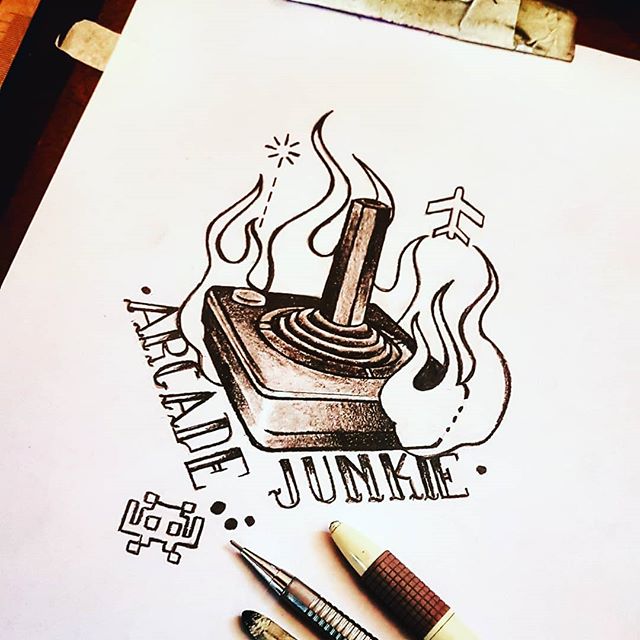 ARCADE
JUNKIE